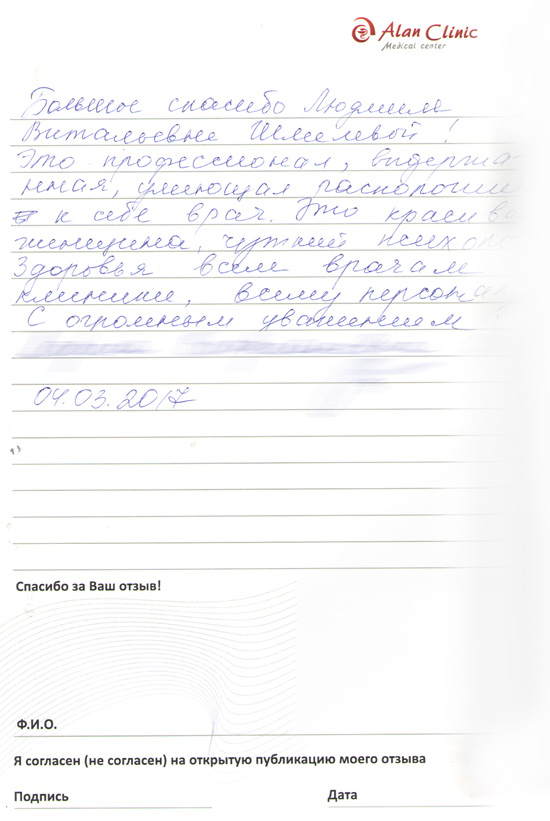 Alan Clinic
Medical center
Большое спасибо Людмиле
Витальевне Шмелевой!
Это профессионал, выдержа
нная, умеющая расположи
к себе врач. Это красива
женщина, чуткий психоло
Здоровья всем врачам
клиники, всему персоналу
С огромным уважением
04.03.2017
Спасибо за Ваш отзыв!
Ф.И.О.
Я согласен (не согласен) на открытую публикацию моего отзыва
Подпись Дата